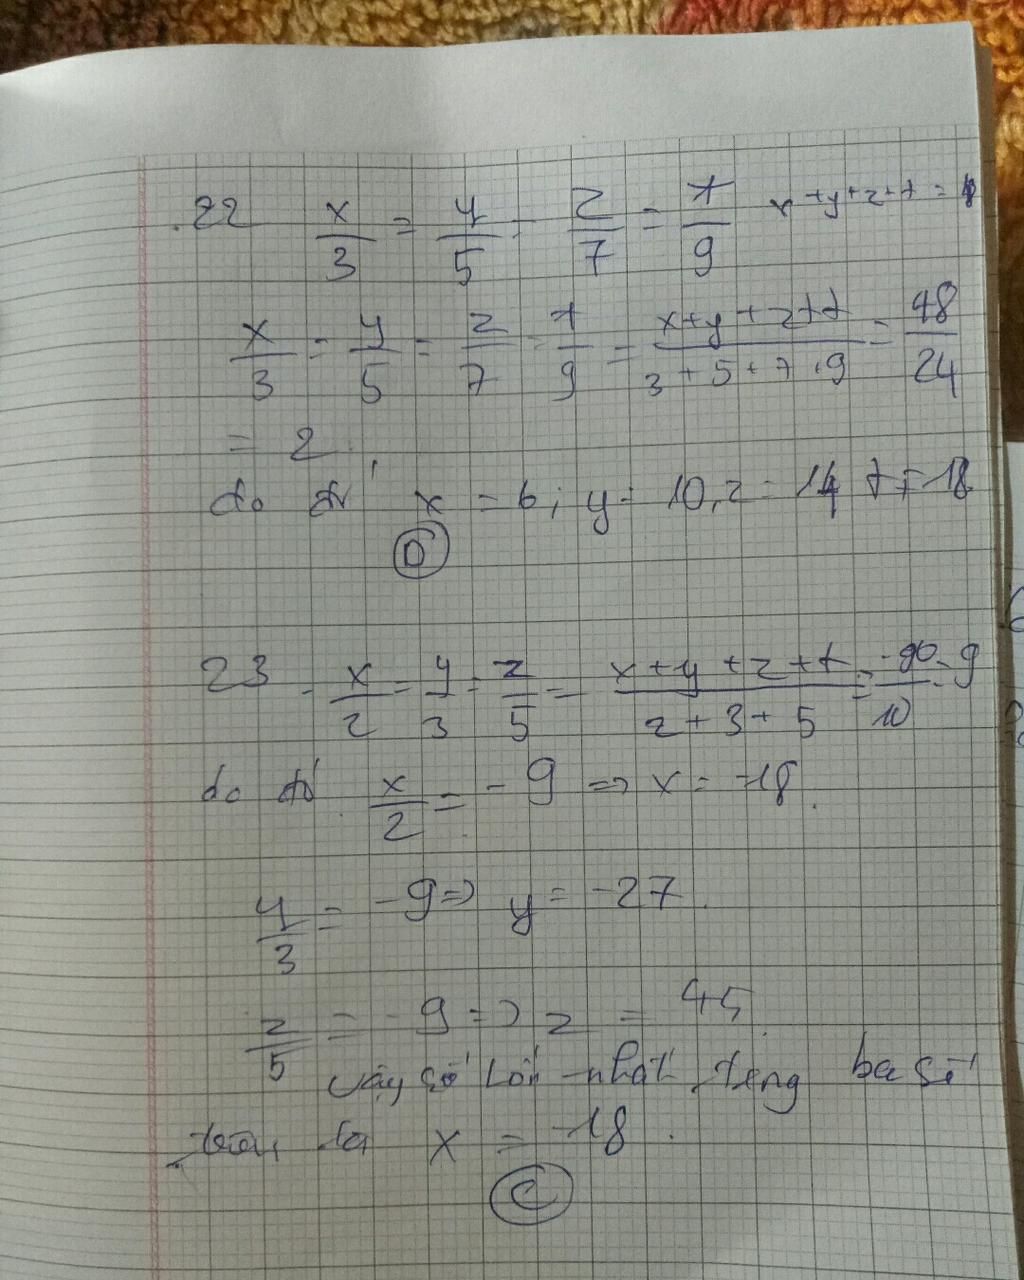 22 x/3 = y/5 = z/7 = t/9 x+y+z+t =
x/3 = y/5 = z/7 = t/9 = (x+y+z+t)/(3+5+7+9) = 48/24
= 2
do đó x = 6; y = 10, z = 14 t = 18
D
23 - x/2 = y/3 = z/5 = (x+y+z+t)/(2+3+5) = -90/10 = -9
do đó x/2 = -9 => x = -18.
y/3 = -9 => y = -27.
z/5 = -9 => z = 45.
Vậy số lớn nhất trong ba số
trên là x = -18.
C